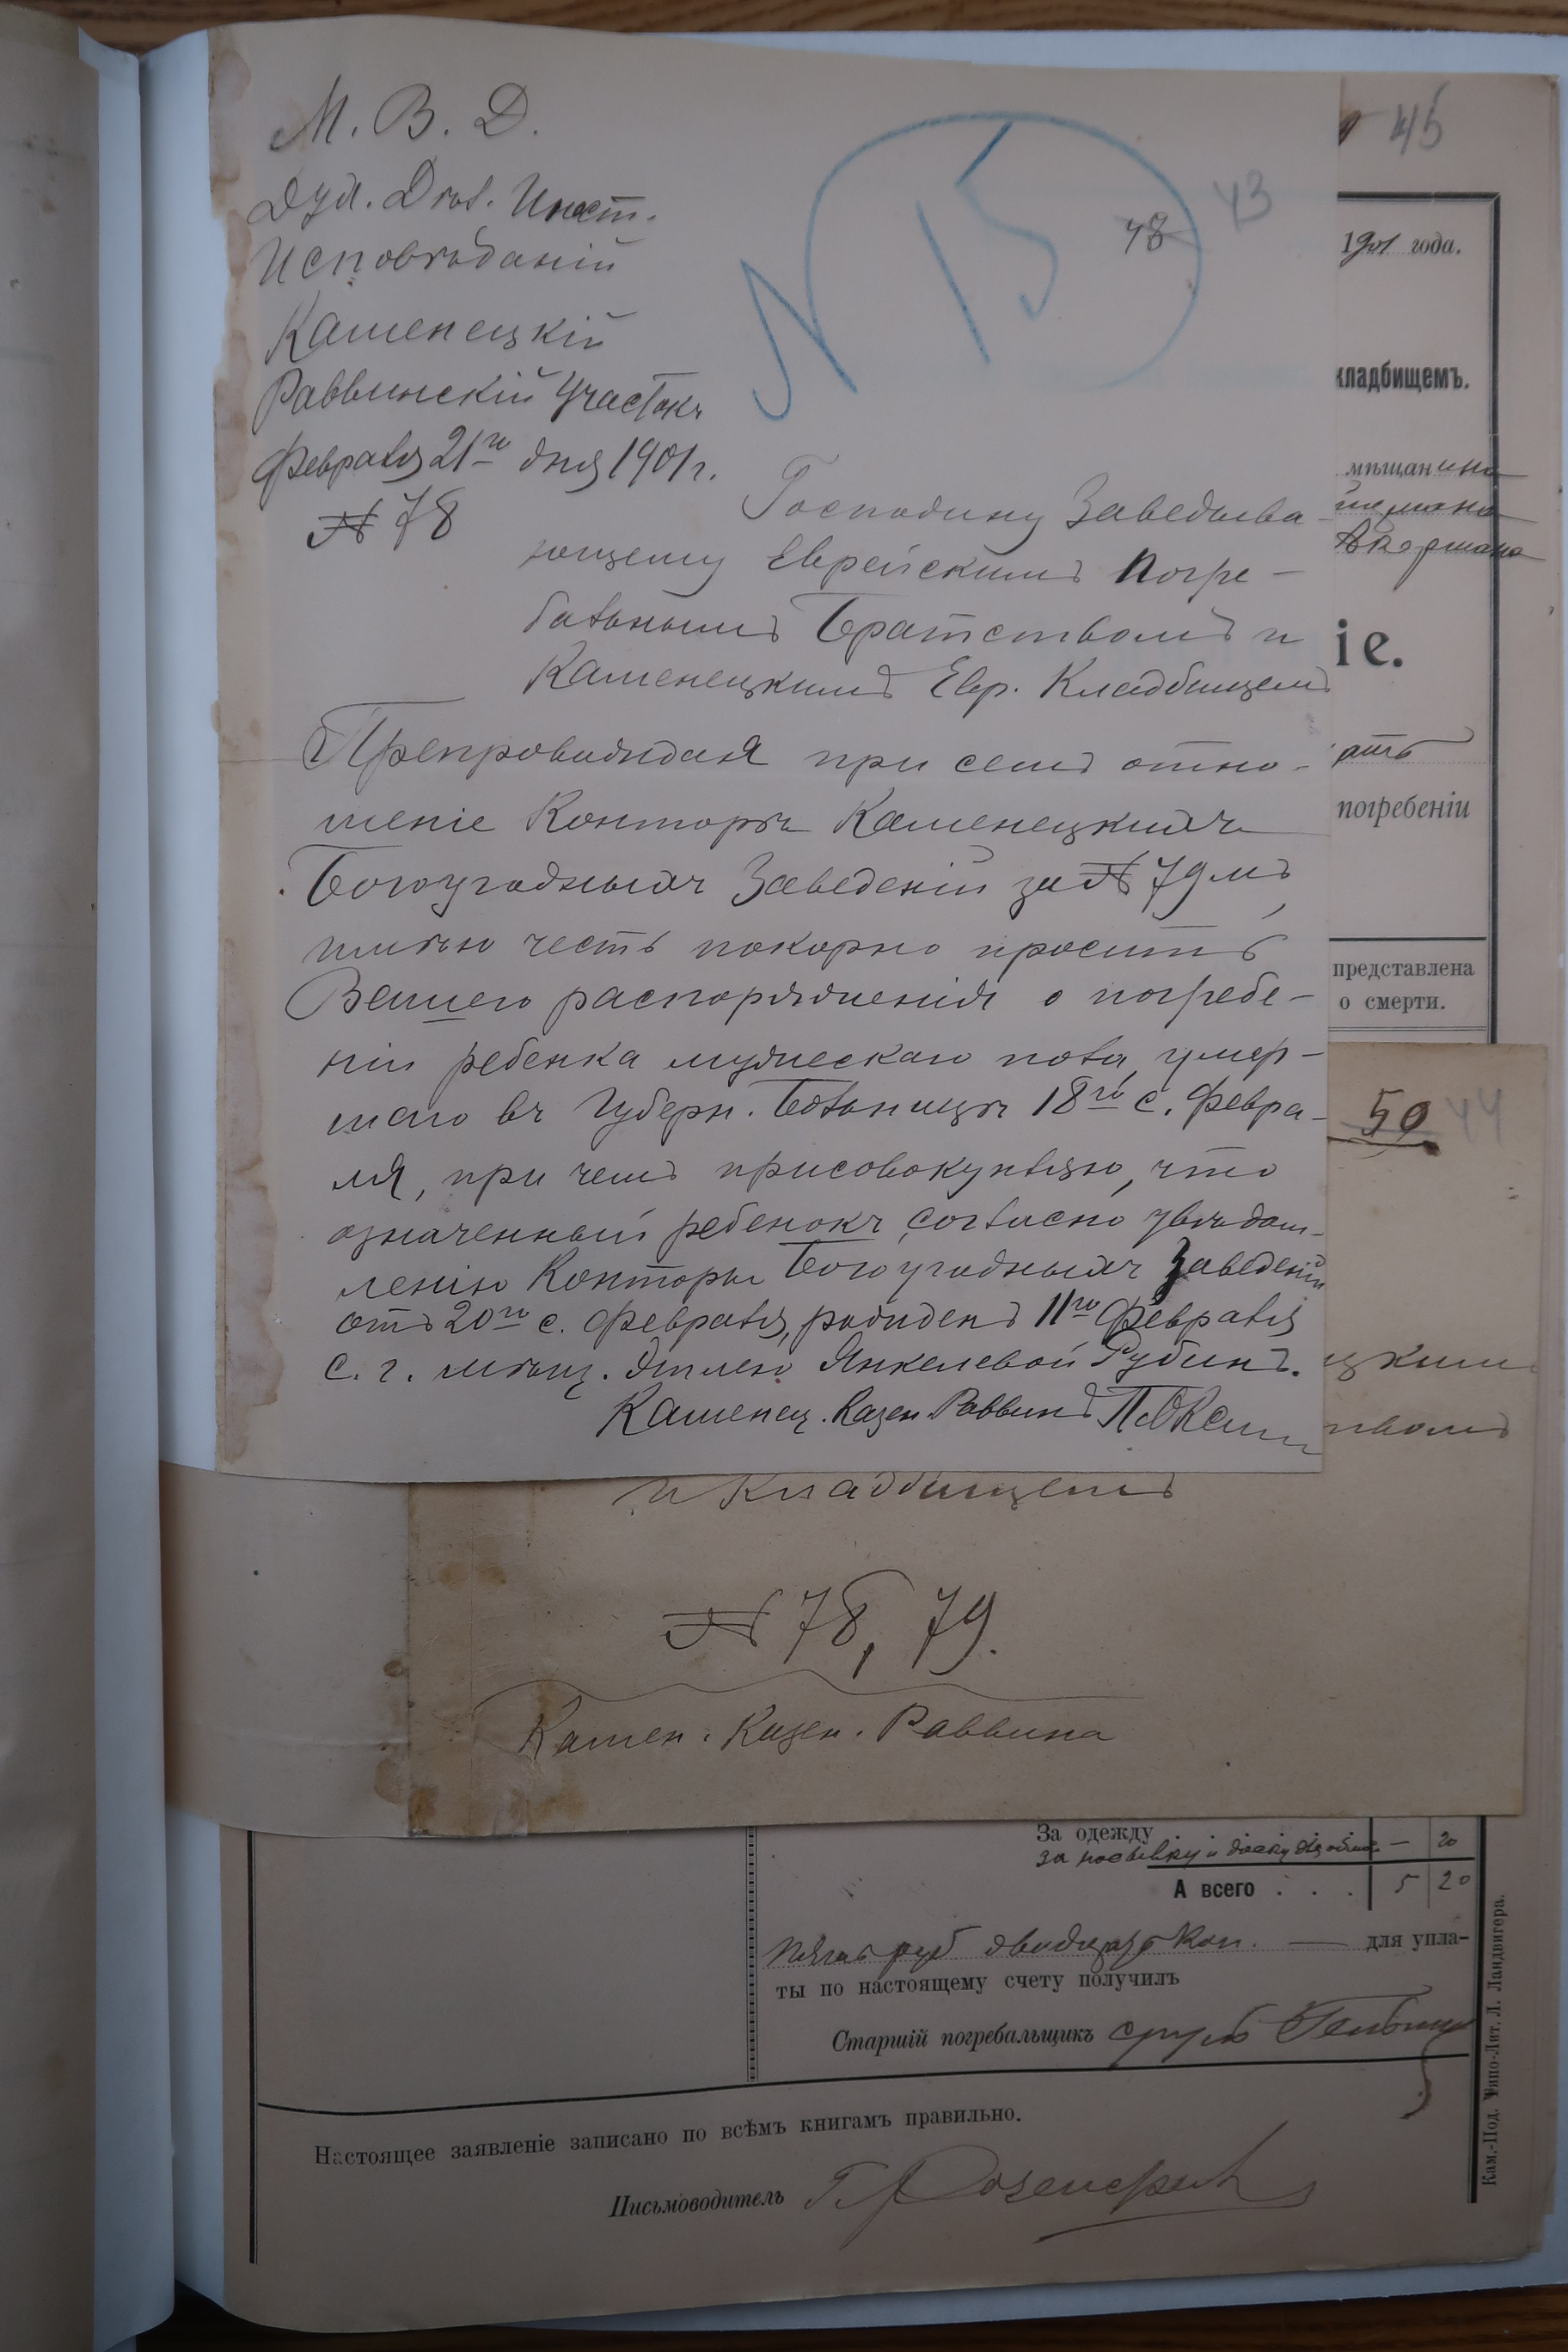 М. В. Д.
Дух. Дѣл. Иност.
Исповѣданій
Каменецкій
Раввинскій Участокъ
Февраля 21го дня 1901 г.
№ 78
N 15
48
43
45
Господину Заведыва-
ющему Еврейскимъ Погре-
бальнымъ Братствомъ и
Каменецкимъ Евр. Кладбищемъ
Препровождая при семъ отно-
шеніе Конторы Каменецкихъ
Богоугодныхъ Заведеній за № 79мъ,
имѣю честь покорно просить
Вашего распоряженія о погребе-
ніи ребенка мужескаго пола, умер-
шаго въ Губерн. Больницѣ 18го с. Февра-
ля, при чемъ присовокупляю, что
означенный ребенокъ, согласно увѣдом-
ленію Конторы Богоугодныхъ Заведеній
отъ 20го с. Февраля, рожденъ 11го Февраля
с. г. мѣщ. Этлею Янкелевой Рубинъ.
Каменец. Казен. Раввинъ
1901 года.
кладбищемъ.
мѣщанина
Акермана
іе.
ать
погребеніи
представлена
о смерти.
50 44
цкимъ
твомъ
и Кладбищемъ
№ 78, 79.
Камен. Казен. Раввина
За одежду
за носилки и доски — 20
А всего . . . 5 20
Пять руб двадцать коп. — для упла-
ты по настоящему счету получилъ
Старшій погребальщикъ
Настоящее заявленіе записано по всѣмъ книгамъ правильно.
Письмоводитель
Кам.-Под. Типо-Лит. Л. Ландвигера.